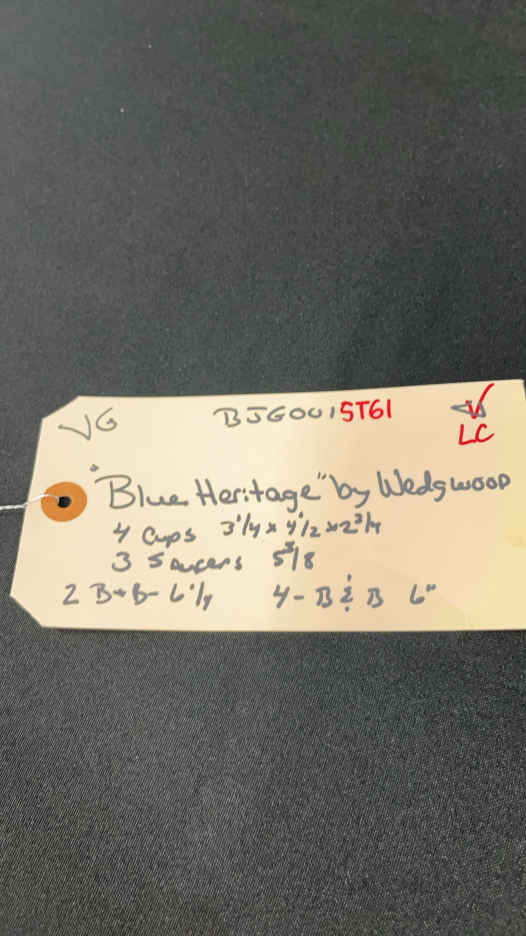 VG BJG001ST61
LC
"Blue Heritage" by Wedgwood
4 Cups 3 1/4 x 4 1/2 x 2 3/4
3 Saucers 5 5/8
2 B+B- 6 1/4 4- B & B 6"